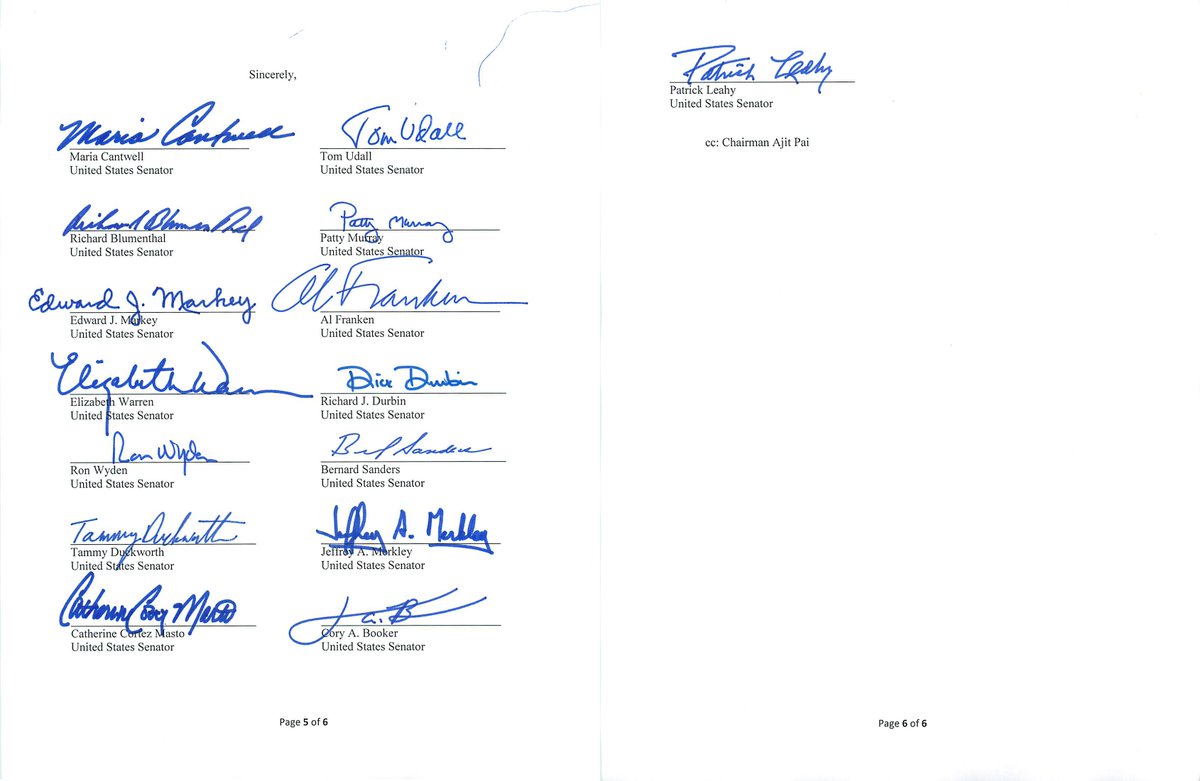 Sincerely,
Maria Cantwell
Tom Udall
Maria Cantwell
United States Senator
Tom Udall
United States Senator
Richard Blumenthal
Patty Murray
Richard Blumenthal
United States Senator
Patty Murray
United States Senator
Edward J. Markey
Al Franken
Edward J. Markey
United States Senator
Al Franken
United States Senator
Elizabeth Warren
Dick Durbin
Elizabeth Warren
United States Senator
Richard J. Durbin
United States Senator
Ron Wyden
Sanders
Ron Wyden
United States Senator
Bernard Sanders
United States Senator
Tammy Duckworth
Jeffrey A. Merkley
Tammy Duckworth
United States Senator
Jeffrey A. Merkley
United States Senator
Catherine Cortez Masto
Catherine Cortez Masto
United States Senator
Cory A. Booker
United States Senator
Page 5 of 6
Patrick Leahy
Patrick Leahy
United States Senator
cc: Chairman Ajit Pai
Page 6 of 6